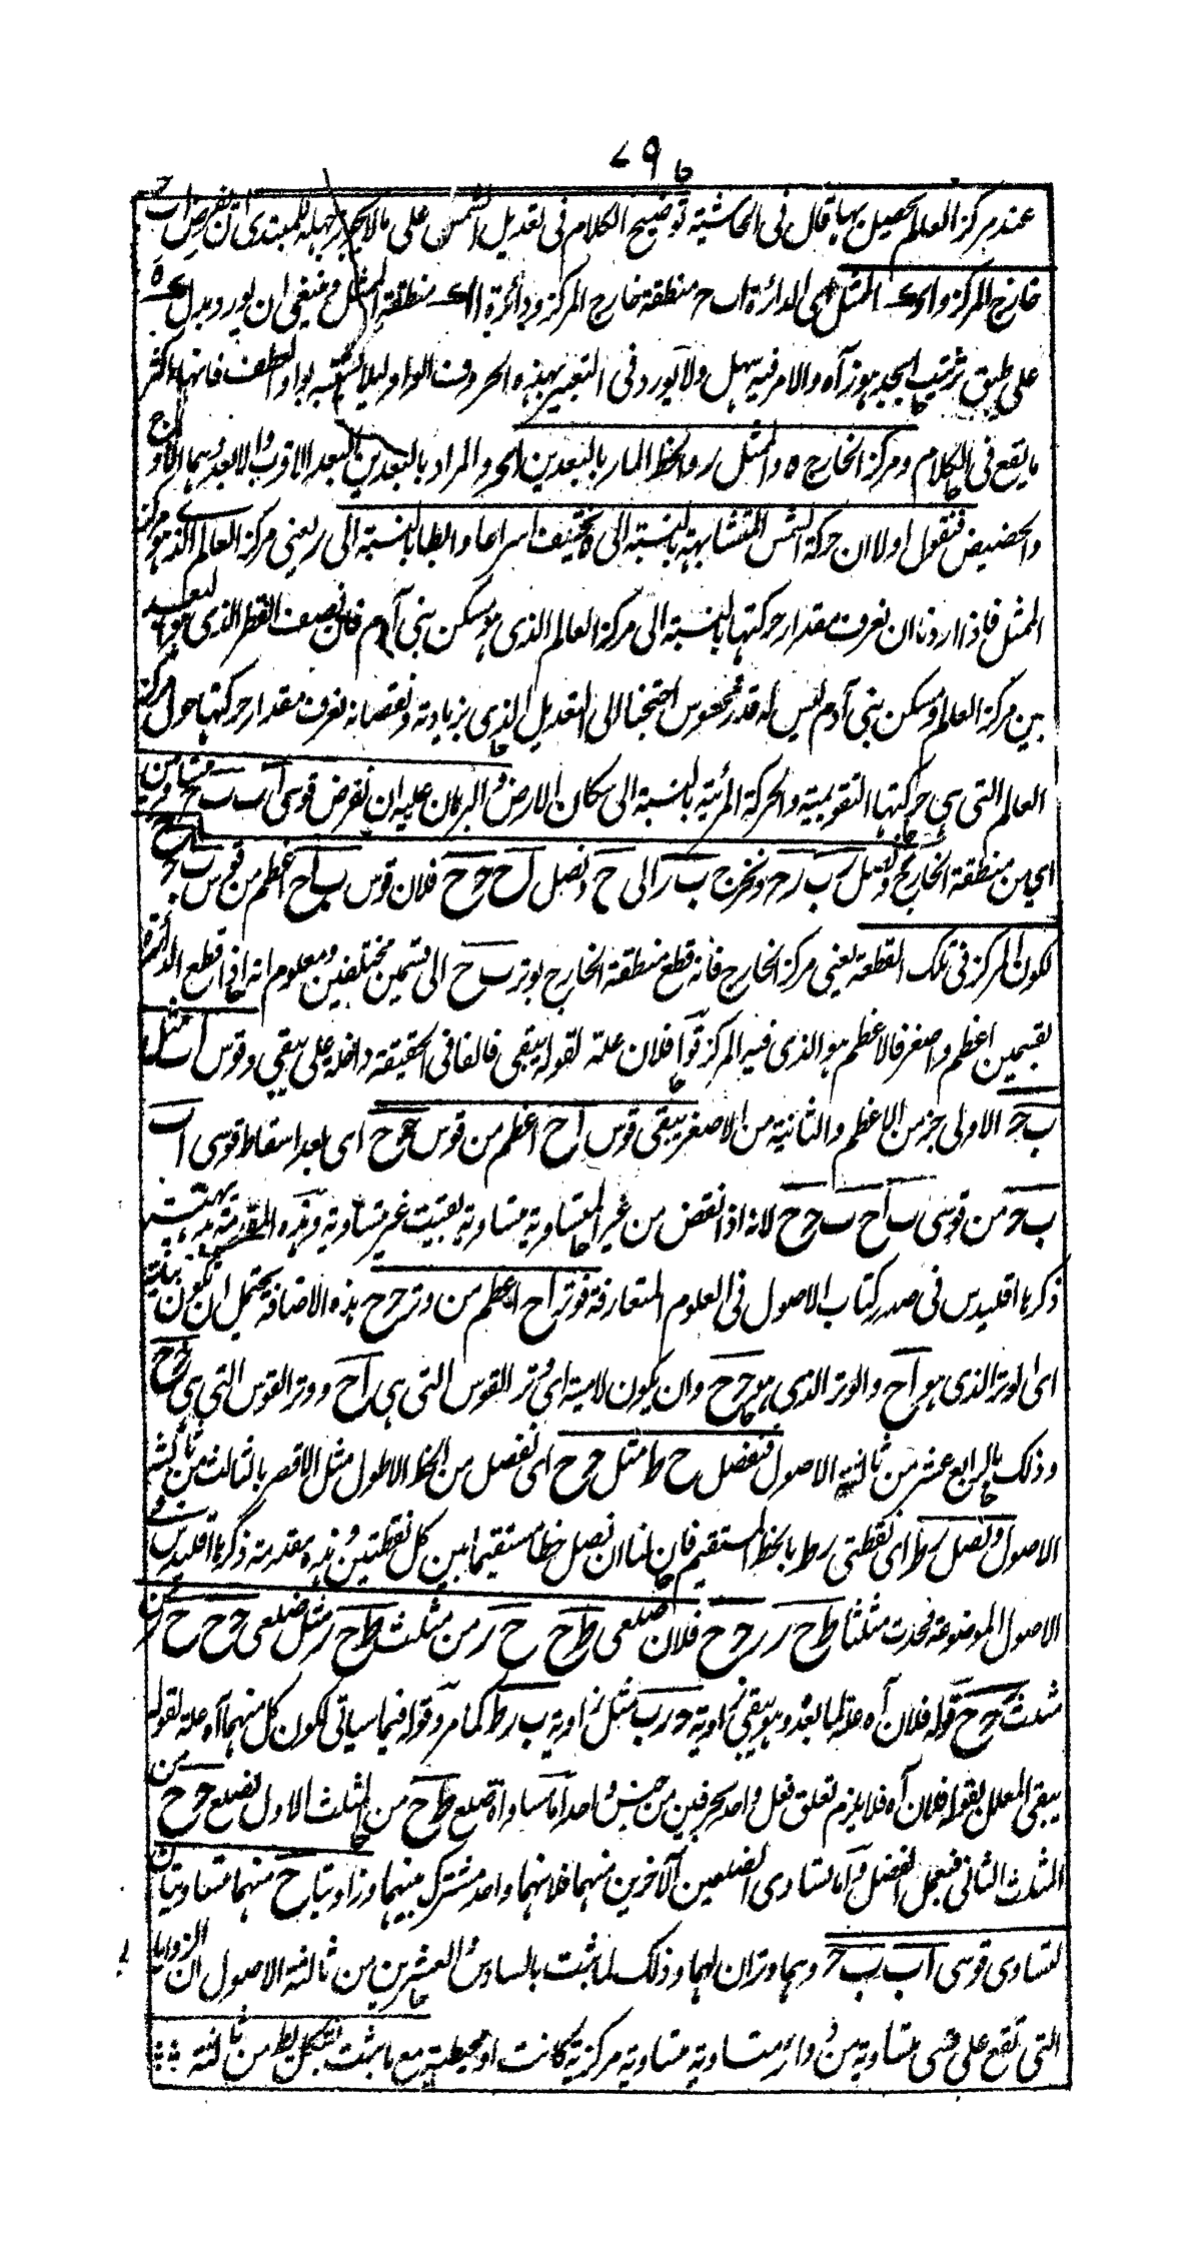 ٧٩
عند مركز العالم يحصل بهما قال فى الحاشية توضيح الكلام فى تعديل الشمس على ما لا يجوز جهله للمبتدى ان نفرض اب ح
خارج المركز و الممثل اى الدائرة اب ح منطقة خارج المركز ودائرة منطقة الممثل ح ينبغى ان يورد بدل ه
على طبق ترتيب ابجد هوز آه والامر فيه سهل ولا يورد فى التعبير بهذه الحروف الواو ليلا يشتبه بواو العطف فانها اكثر
ما يقع فى الكلام ومركز الخارج ه والممثل ر والخط المار بالبعدين والمراد بالبعدين البعد الاقرب والابعد وهما الاوج
والحضيض فنقول اولا ان حركة الشمس المتشابهة بالنسبة الى ه تختلف اسراعا وابطا بالنسبة الى ر يعنى مركز العالم الذى هو مركز
الممثل فاذا اردنا ان نعرف مقدار حركتها بالنسبة الى مركز العالم الذى هو مسكن بنى آدم فان نصف القطر الذى هو البعد
بين مركز العالم ومسكن بنى آدم ليس له قدر محسوس احتجنا الى التعديل الذى بزيادته ونقصانه نعرف مقدار حركتها حول مركز
العالم التى هى حركتها التقويمية والحركة المرئية بالنسبة الى سكان الارض والبرهان عليه ان نفرض قوسى اب ب ح متساويتين
اى من منطقة الخارج ونصل ر ب ر ح ونخرج ب ر الى ح ونصل ا ح ح ح فلان قوس ب ا ح اعظم من قوس ب ح ح
لكون المركز فى تلك القطعة يعنى مركز الخارج فانه قطع منطقة الخارج بوتر ب ح الى قسمين مختلفين ومعلوم انه اذا قطع الدائرة
بقسمين اعظم واصغر فالاعظم هو الذى فيه المركز قوله فلان علة لقوله يبقى فالفا فى الحقيقة داخلة على يبقى وقوس اب مثل
ب ح الاولى جز من الاعظم والثانية من الاصغر يبقى قوس ا ح اعظم من قوس ح ح اى بعد اسقاط قوسى اب
ب ح من قوسى ب ا ح ب ح ح لانه اذا نقص من غير المتساوية متساوية بقيت غير متساوية وهذه المقدمة بديهية
ذكرها اقليدس فى صدر كتاب الاصول فى العلوم المتعارفة فوتر ا ح اعظم من وتر ح ح هذه الاضافة يحتمل ان تكون بيانية
اى الوتر الذى هو ا ح والوتر الذى هو ح ح وان يكون لامية اى وتر القوس التى هى ا ح ووتر القوس التى هى ح ح
وذلك بالرابع عشر من ثالثة الاصول فنفصل ح ط مثل ح ح اى نفصل من الخط الاطول مثل الاقصر بالثالث من
الاصول ونصل ر ط اى نقطتى ر ط بالخط المستقيم فان لنا ان نصل خطا مستقيما بين كل نقطتين وهذه مقدمة ذكرها اقليدس فى
الاصول الموضوعة فحدث مثلثا ط ح ر ر ح ح فلان ضلعى ط ح ح ر من مثلث ط ح ر مثل ضلعى ح ح ح ر من
مثلث ر ح ح قوله فلان آه علة لما بعده وهو يبقى زاوية ح ر ب مثل زاوية ب ر ط كما مر وقوله فيما سياتى لكون كل منهما آه علة لقوله
يبقى المعلل بقوله فلان آه فلا يلزم تعلق فعل واحد بحرفين من جنس واحد اما مساواة ضلع ط ح من المثلث الاول لضلع ح ح من
المثلث الثانى فبعمل الفصل واما تساوى الضلعين الآخرين منهما فلانهما واحد مشترك بينهما وزاويتا ح منهما متساويتان
لتساوى قوسى اب ب ح وهما وتران لهما وذلك لما ثبت بالسادس والعشرين من ثالثة الاصول ان الزوايا
التى تقع على قسى متساوية من دوائر متساوية متساوية مركزية كانت او محيطية مع ما ثبت بشكل يط من ثالثة